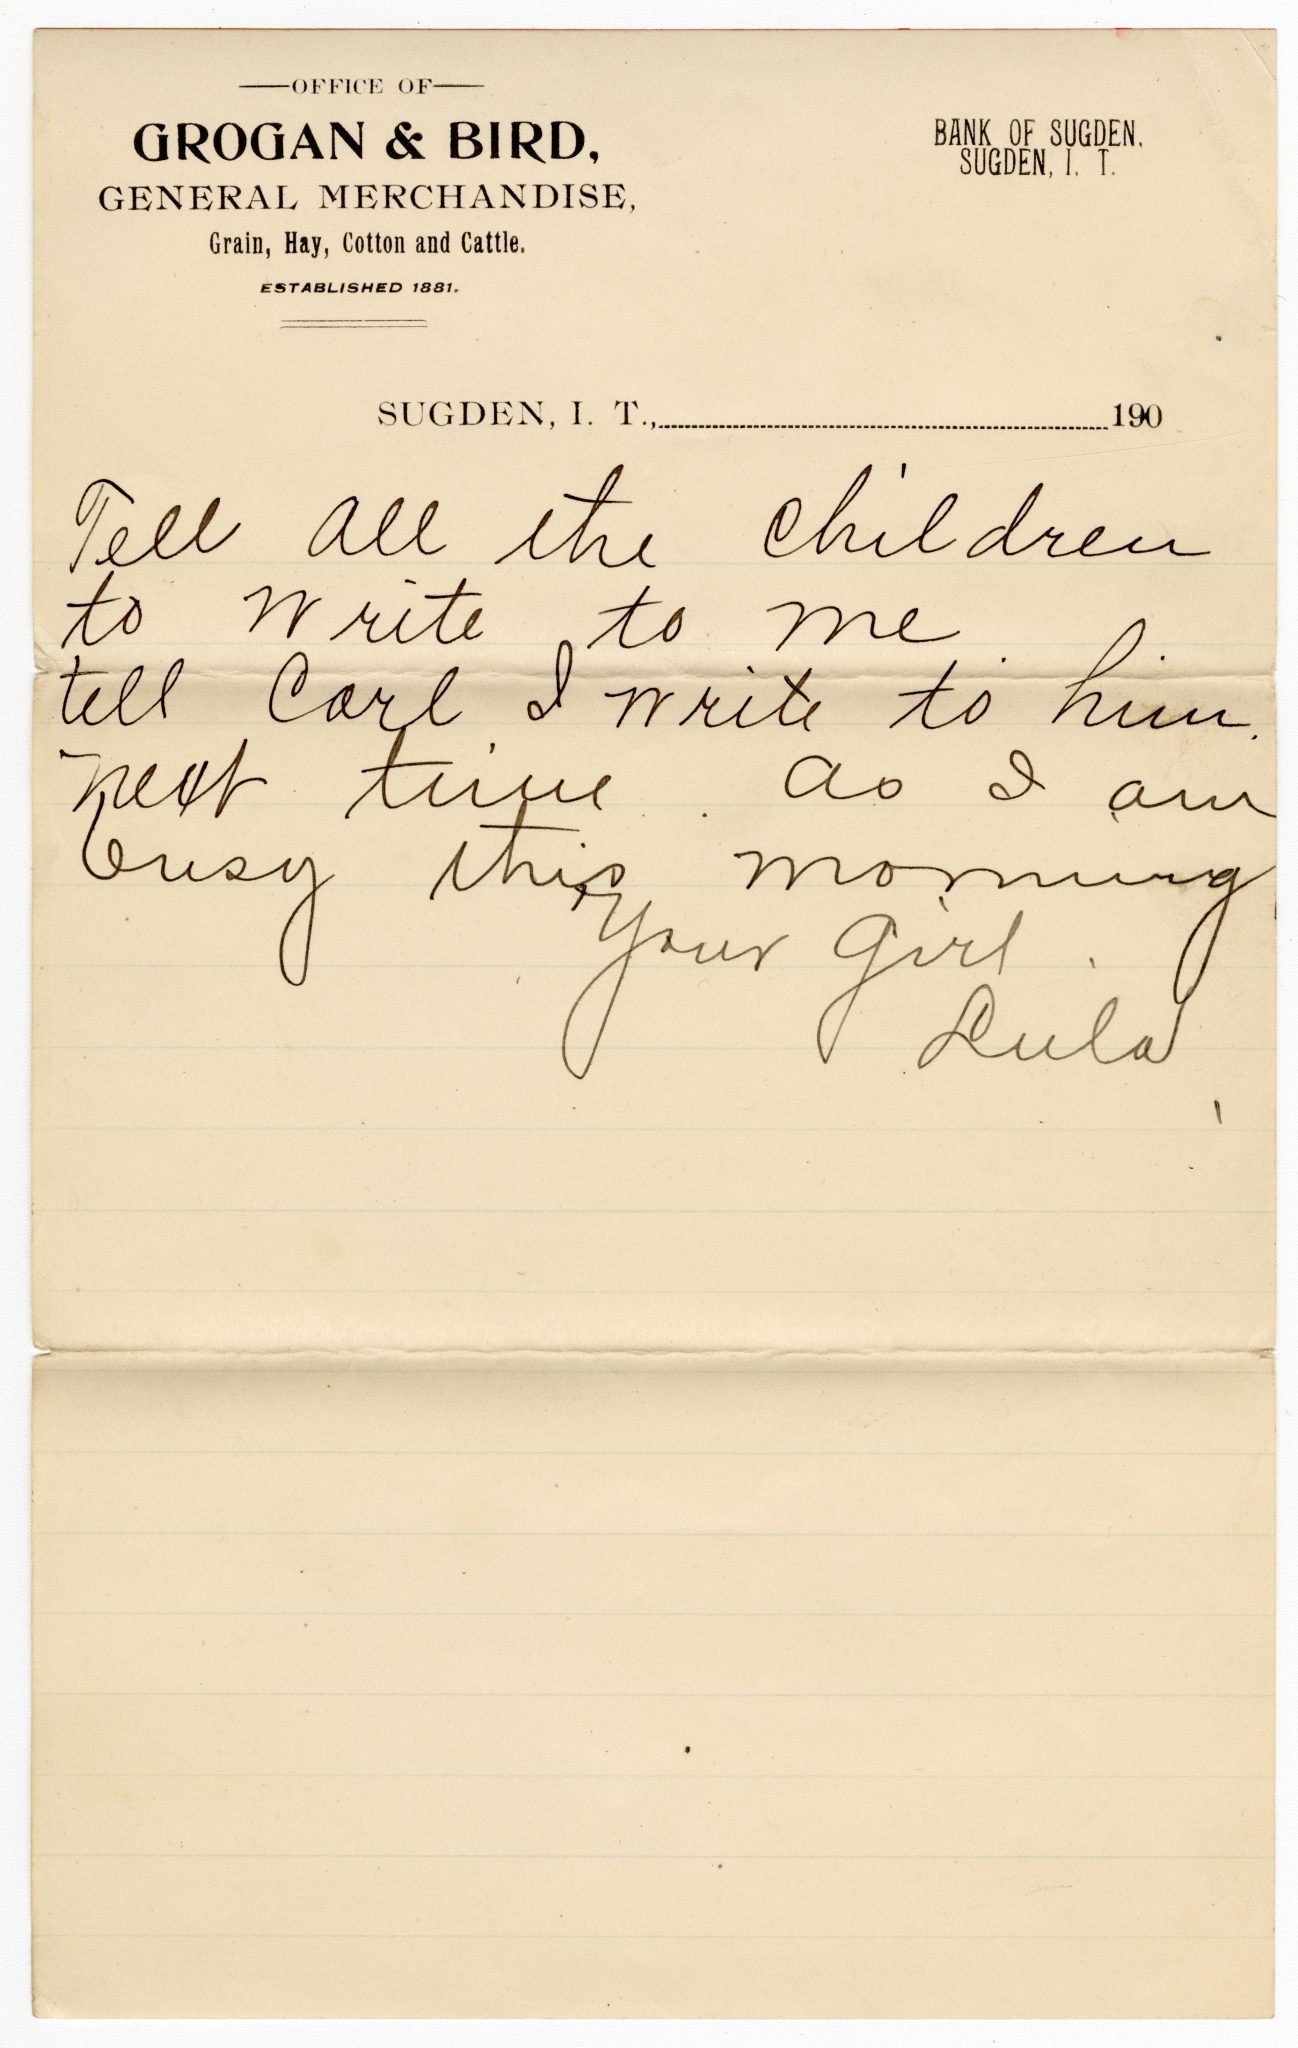 OFFICE OF
GROGAN & BIRD,
GENERAL MERCHANDISE,
Grain, Hay, Cotton and Cattle.
ESTABLISHED 1881.
BANK OF SUGDEN.
SUGDEN, I. T.
SUGDEN, I. T., 190
Tell all the children
to write to me
tell Carl I write to him.
next time. as I am
busy this morning
Your Girl.
Lula